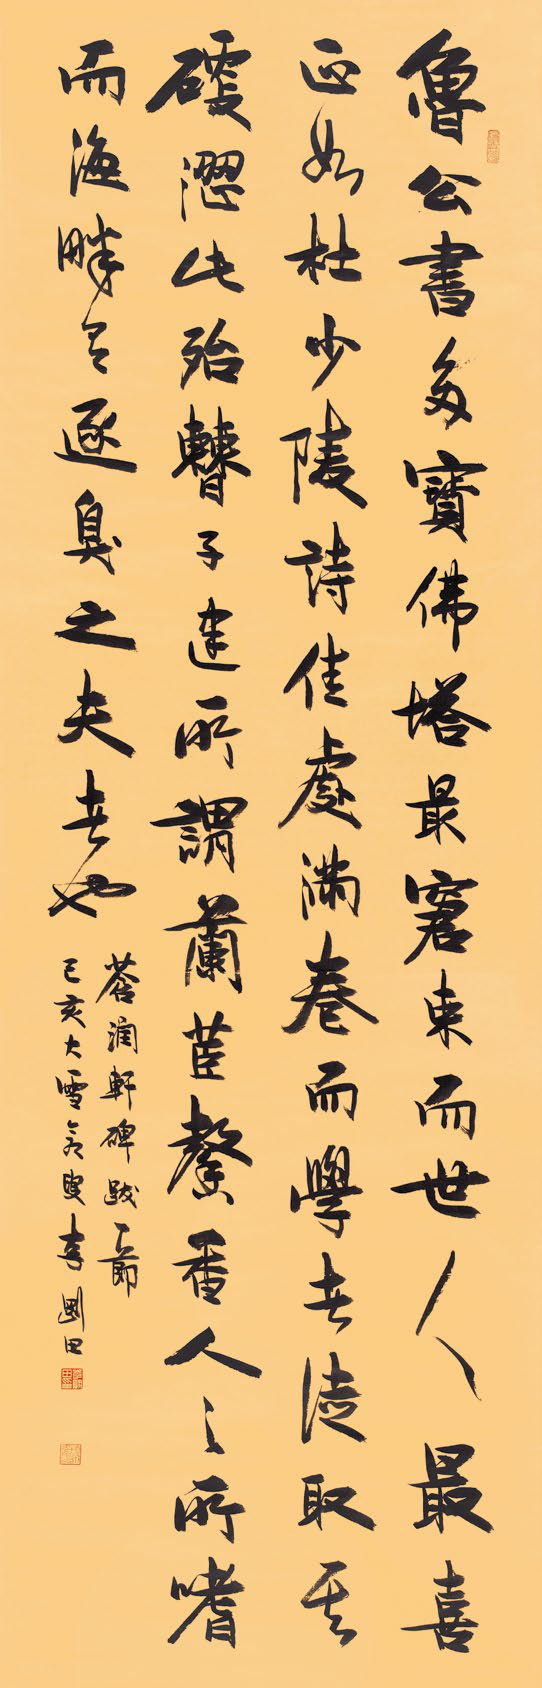 魯公書多寶佛塔最窘束而世人最喜
正如杜少陵詩佳處滿卷而學者徒取其
硬澀此殆瞽子建所謂蘭茝馨香人之所嗜
而海畔有逐臭之夫者也
蒼潤軒碑跋一節
己亥大雪 李剛田